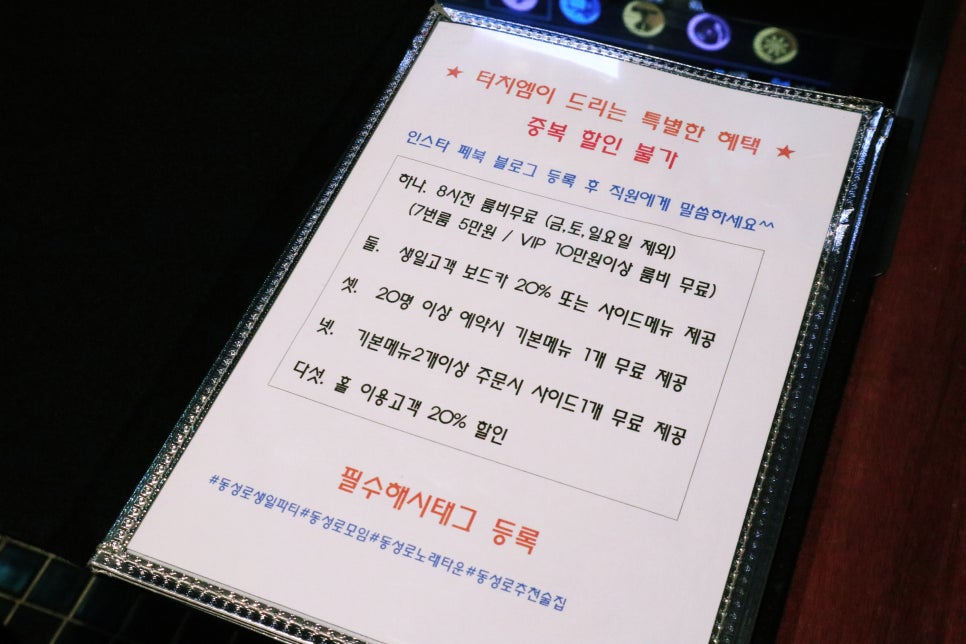 ★ 터치엠이 드리는 특별한 혜택 ★
중복 할인 불가
인스타 페북 블로그 등록 후 직원에게 말씀하세요^^
하나. 8시전 룸비무료 (금,토,일요일 제외)
(7번룸 5만원 / VIP 10만원이상 룸비 무료)
둘. 생일고객 보드카 20% 또는 사이드메뉴 제공
셋. 20명 이상 예약시 기본메뉴 1개 무료 제공
넷. 기본메뉴2개이상 주문시 사이드1개 무료 제공
다섯. 홀 이용고객 20% 할인
필수해시태그 등록
#동성로생일파티#동성로모임#동성로노래타운#동성로추천술집